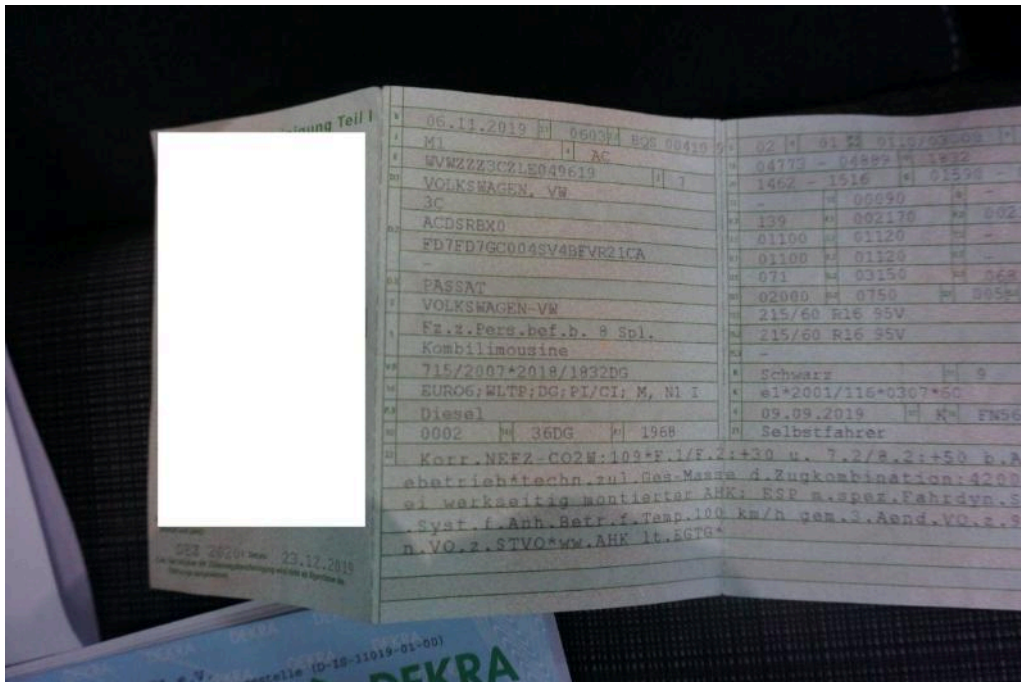 igung Teil I
06.11.2019 0603 BQS 00419 9
M1 AC
WVWZZZ3CZLE049619 7
VOLKSWAGEN, VW
3C
ACDSRBX0
FD7FD7GC004SV4BFVR21CA
-
PASSAT
VOLKSWAGEN-VW
Fz.z.Pers.bef.b. 8 Spl.
Kombilimousine
715/2007*2018/1832DG
EURO6;WLTP;DG;PI/CI; M, N1 I
Diesel
0002 36DG 1968
02 01 0110/03500
04773 - 04889 1832
1462 - 1516 01590 -
- 00090 -
139 002170 002
01100 01120 -
01100 01120 -
071 03150 068
02000 0750
215/60 R16 95V
215/60 R16 95V
-
Schwarz 9
e1*2001/116*0307*
09.09.2019 K FN56
Selbstfahrer
Korr.NEFZ-CO2W:109*F.1/F.2:+30 u. 7.2/8.2:+50 b.A
ebetrieb*techn.zul.Ges-Masse d.Zugkombination:4200
ei werkseitig montierter AHK: ESP m.spez.Fahrdyn.S
Syst.f.Anh.Betr.f.Temp.100 km/h gem.3.Aend.VO.z.S
n.VO.z.STVO*ww.AHK lt.EGTG*
DEZ 2020 23.12.2019
DEKRA DEKRA DEKRA
e.V. stelle (D-IS-11019-01-00)
DEKRA